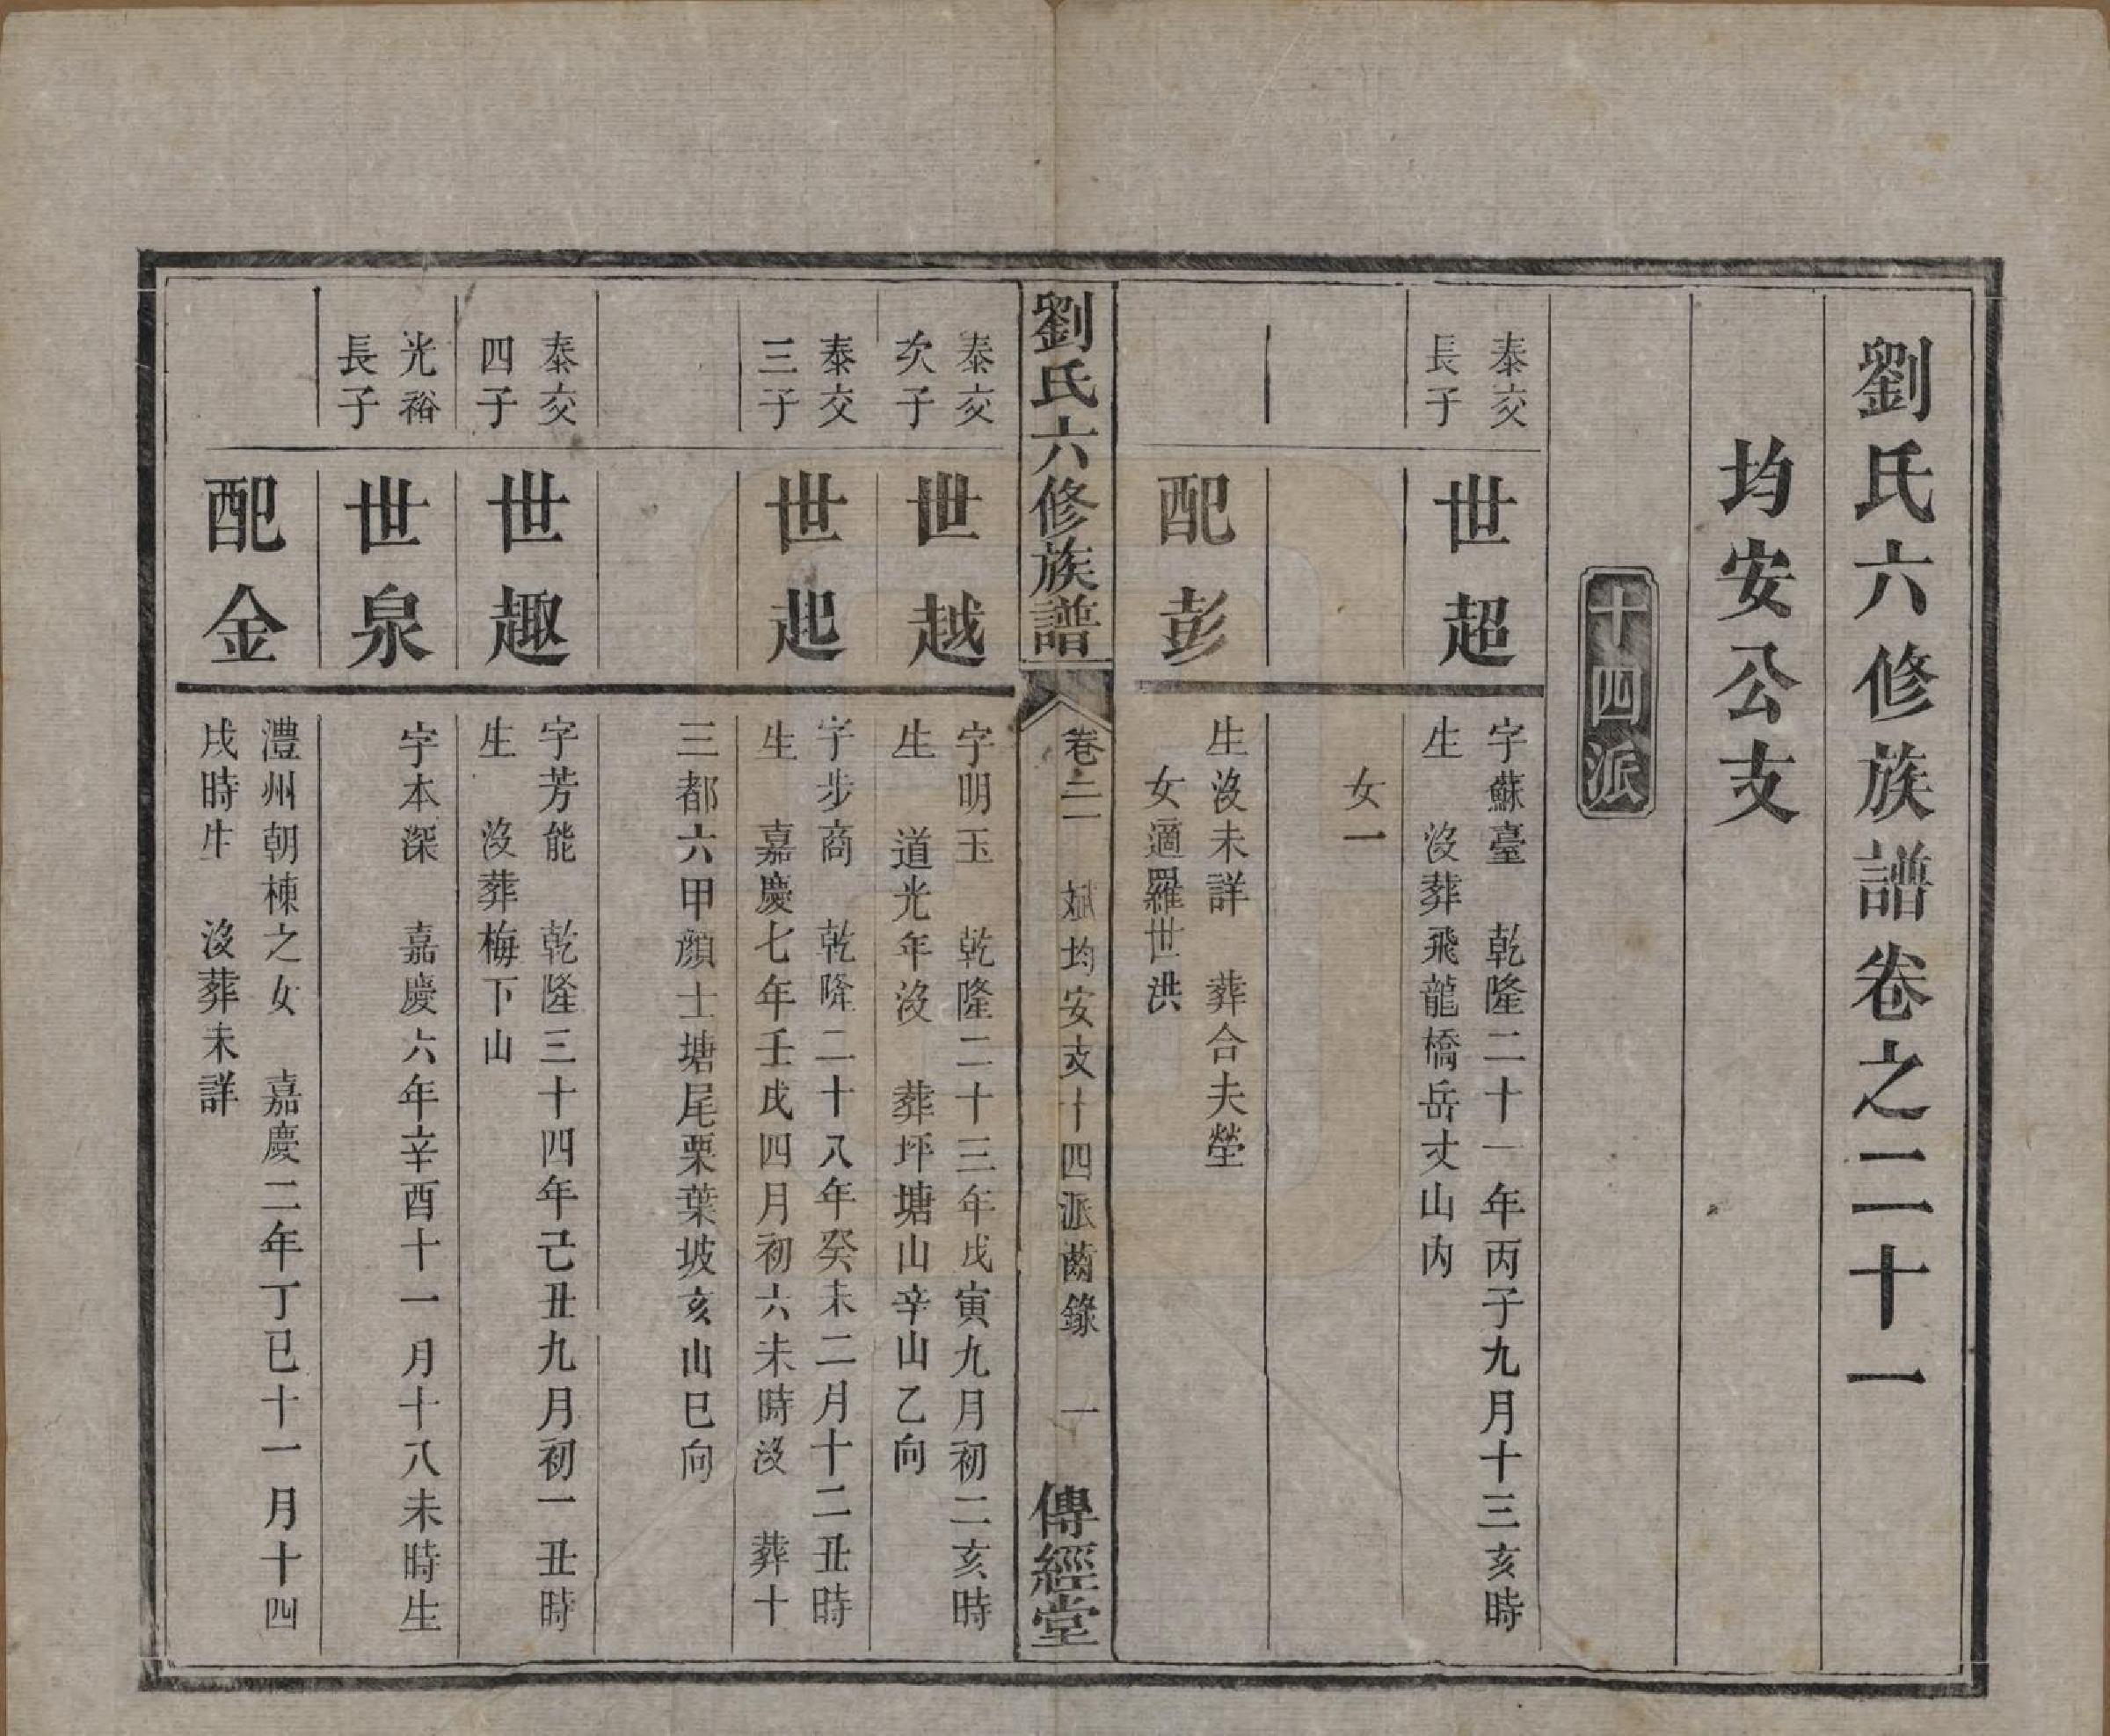 劉氏六修族譜卷之二十一
均安公支
十四派
泰交
長子
世超
字蘇臺　乾隆二十一年丙子九月十三亥時
生　沒葬飛龍橋岳丈山內
女一
配彭
生沒未詳　葬合夫塋
女適羅世洪
劉氏六修族譜
卷二一　斌均安支十四派齒錄　一
傳經堂
泰交
次子
世越
字明玉　乾隆二十三年戊寅九月初二亥時
生　道光年沒　葬坪塘山辛山乙向
泰交
三子
世起
字步商　乾隆二十八年癸未二月十二丑時
生　嘉慶七年壬戌四月初六未時沒　葬十
三都六甲顏士塘尾栗葉坡亥山巳向
泰交
四子
世趣
字芳能　乾隆三十四年己丑九月初一丑時
生　沒葬梅下山
光裕
長子
世泉
字本深　嘉慶六年辛酉十一月十八未時生
配金
澧州朝棟之女　嘉慶二年丁巳十一月十四
戌時生　沒葬未詳